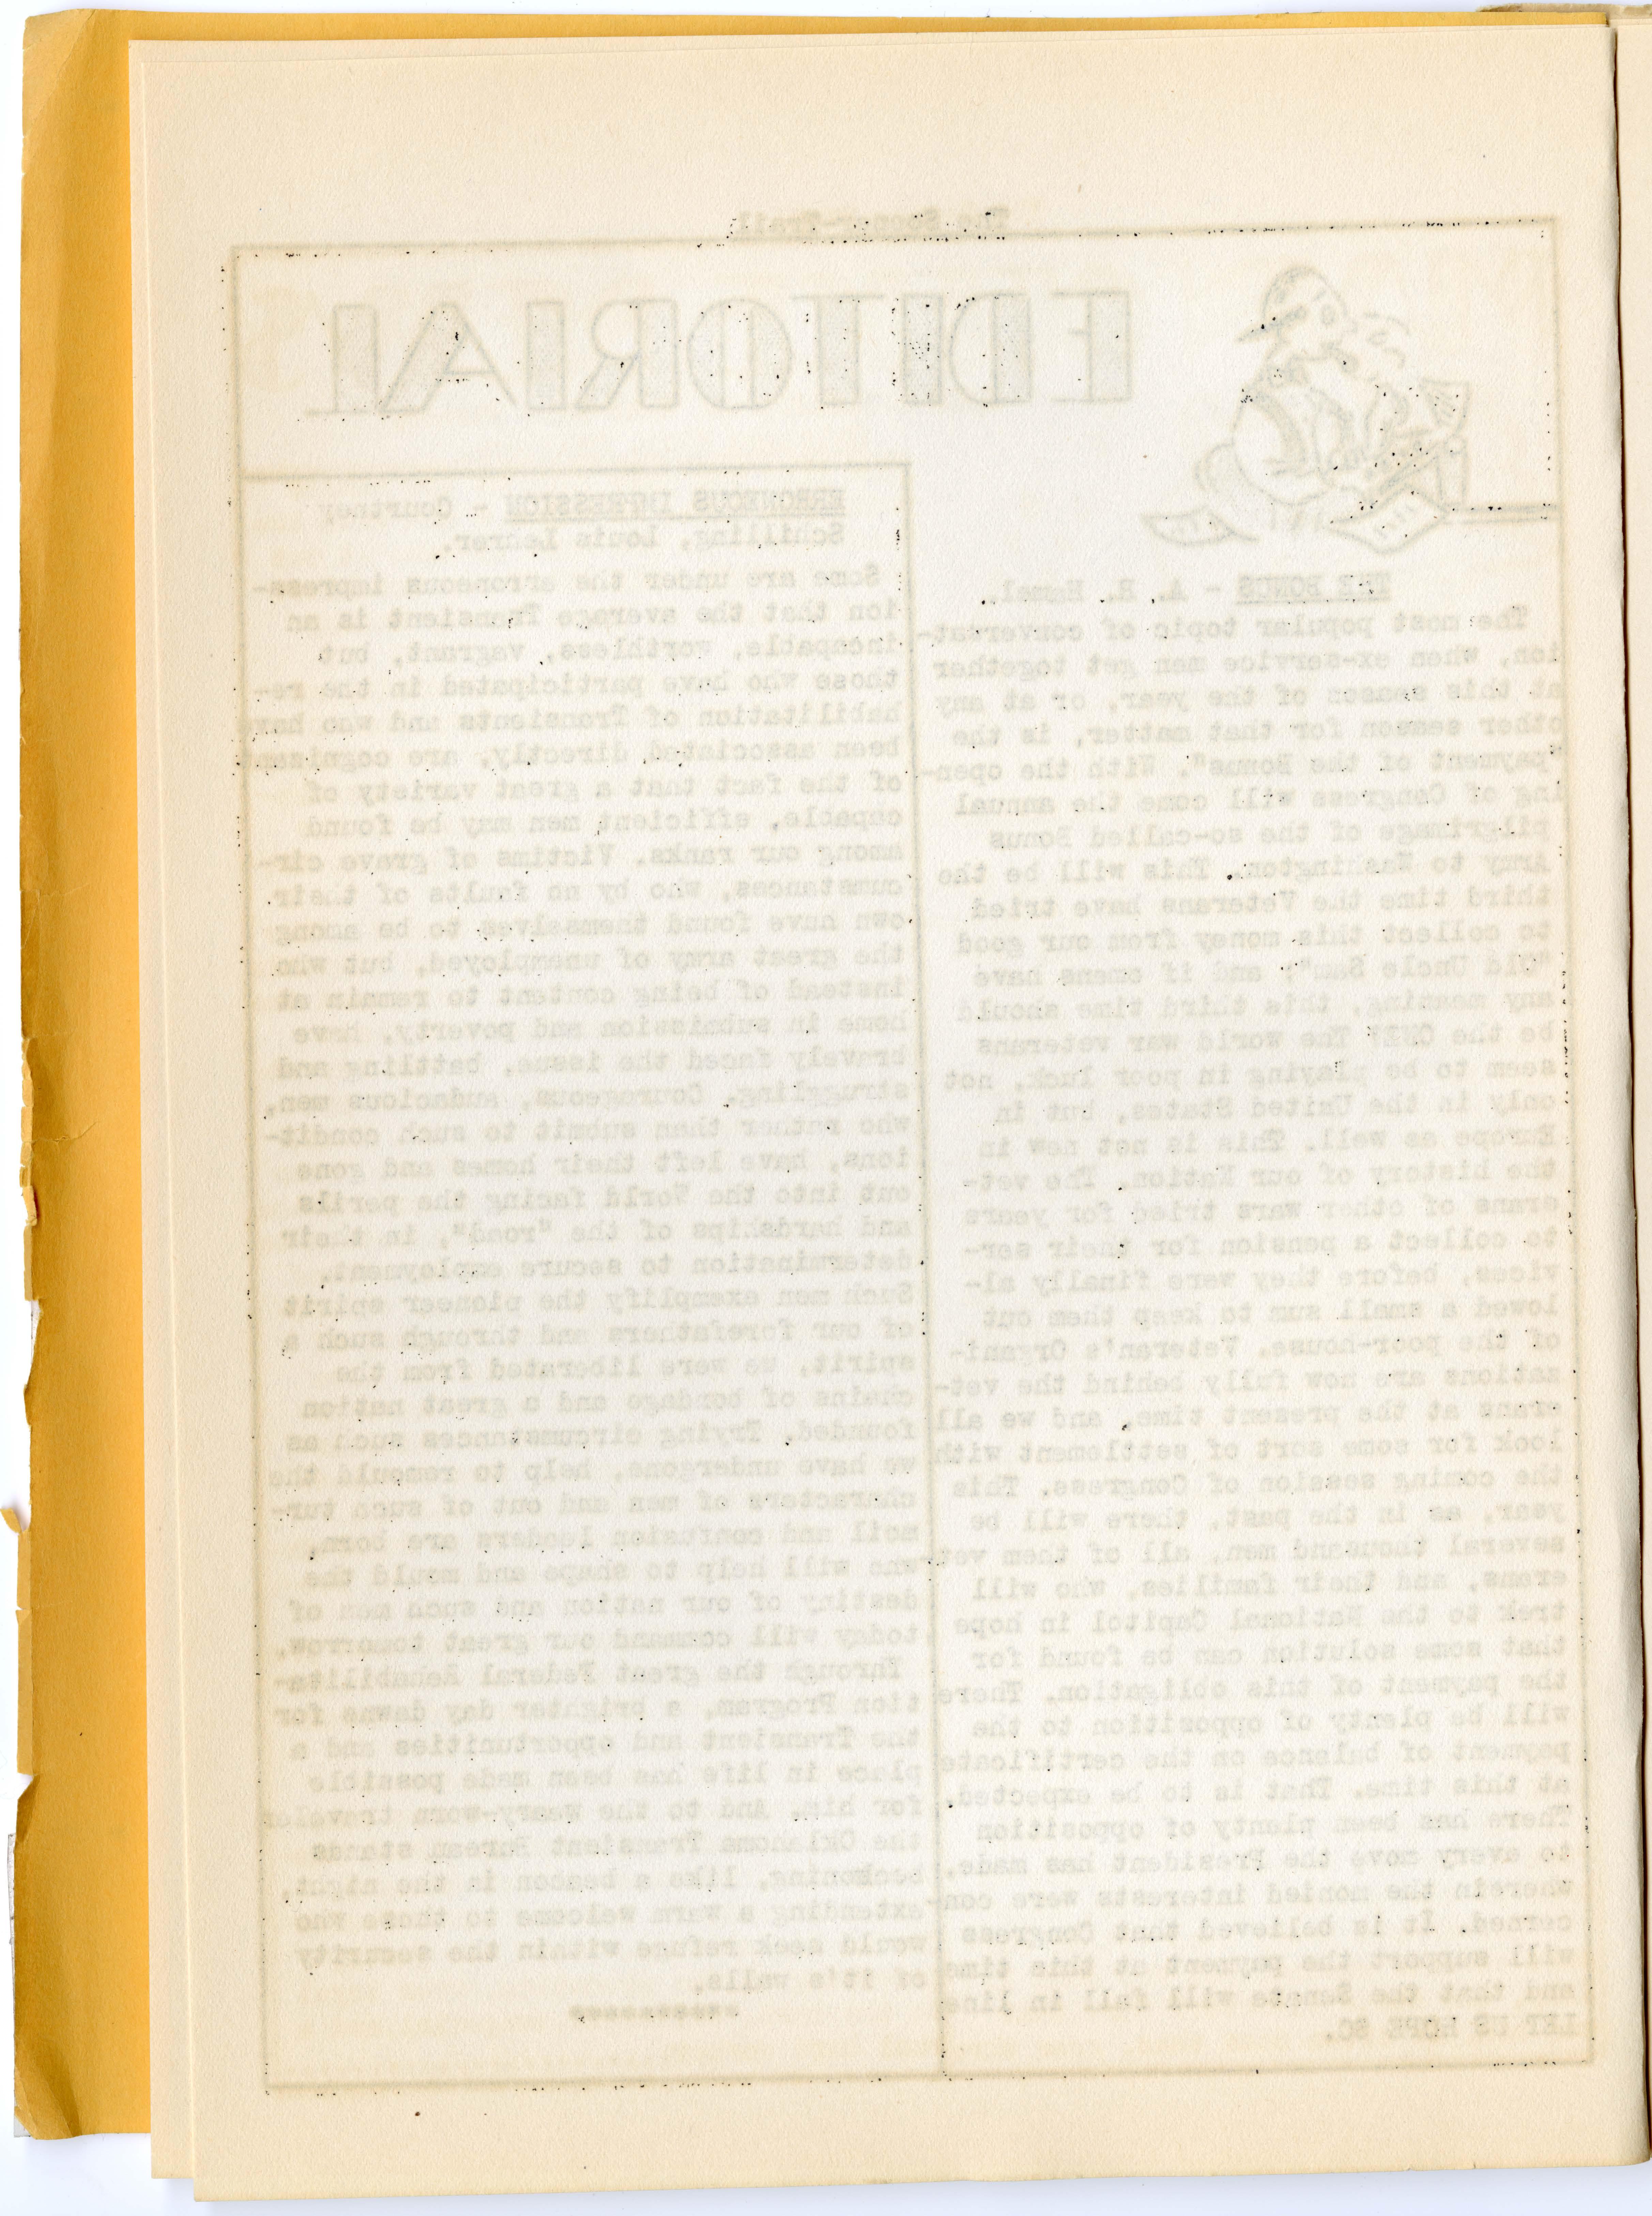 The Sooner-Trail
EDITORIAL
THE BONUS - A. R. Hamel.
The most popular topic of conversat-
ion, when ex-service men get together
at this season of the year, or at any
other season for that matter, is the
"payment of the Bonus". With the open-
ing of Congress will come the annual
pilgrimage of the so-called Bonus
Army to Washington. This will be the
third time the Veterans have tried
to collect this money from our good
"Old Uncle Sam"; and if omens have
any meaning, this third time should
be the ONE! The world war veterans
seem to be playing in poor luck, not
only in the United States, but in
Europe as well. This is not new in
the history of our Nation. The vet-
erans of other wars tried for years
to collect a pension for their ser-
vices, before they were finally al-
lowed a small sum to keep them out
of the poor-house. Veteran's Organi-
zations are now fully behind the vet-
erans at the present time, and we all
look for some sort of settlement with
the coming session of Congress. This
year, as in the past, there will be
several thousand men, all of them vet-
erans, and their families, who will
trek to the National Capitol in hope
that some solution can be found for
the payment of this obligation. There
will be plenty of opposition to the
payment of balance on the certificate
at this time. That is to be expected.
There has been plenty of opposition
to every move the President has made,
wherein the monied interests were con-
cerned. It is believed that Congress
will support the payment at this time
and that the Senate will fall in line
LET US HOPE SO.
ERRONEOUS IMPRESSION - Courtney
Schilling, Louis Lehrer.
Some are under the erroneous impress-
ion that the average Transient is an
incapable, worthless, vagrant, but
those who have participated in the re-
habilitation of Transients and who have
been associated directly, are cognizant
of the fact that a great variety of
capable, efficient men may be found
among our ranks. Victims of grave cir-
cumstances, who by no faults of their
own have found themselves to be among
the great army of unemployed, but who
instead of being content to remain at
home in submission and poverty, have
bravely faced the issue, battling and
struggling. Courageous, audacious men,
who rather than submit to such condit-
ions, have left their homes and gone
out into the World facing the perils
and hardships of the "road", in their
determination to secure employment.
Such men exemplify the pioneer spirit
of our forefathers and through such a
spirit, we were liberated from the
chains of bondage and a great nation
founded. Trying circumstances such as
we have undergone, help to remould the
characters of men and out of such tur-
moil and confusion leaders are born,
who will help to shape and mould the
destiny of our nation and such men of
today will command our great tomorrow.
Through the great Federal Rehabilita-
tion Program, a brighter day dawns for
the Transient and opportunities and a
place in life has been made possible
for him. And to the weary-worn traveler
the Oklahoma Transient Bureau stands
beckoning, like a beacon in the night,
extending a warm welcome to those who
would seek refuge within the security
of it's walls.